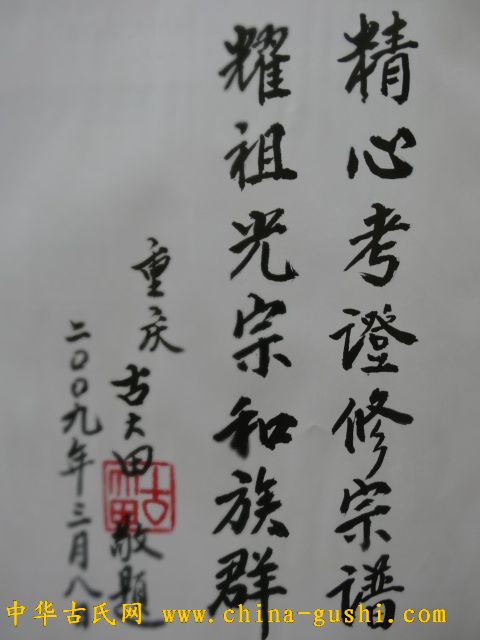 精心考證修宗谱
耀祖光宗和族群
重庆 古大田 敬题
二〇〇九年三月八
中华古氏网 www.china-gushi.com